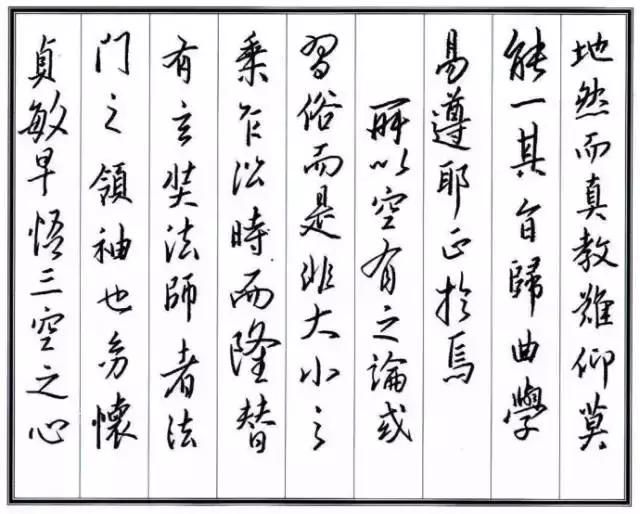 地然而真教難仰莫
能一其旨歸曲學
易遵耶正於焉
解以空有之論或
習俗而是非大小之
乘乍沿時而隆替
有玄奘法師者法
門之領袖也幼懷
貞敏早悟三空之心